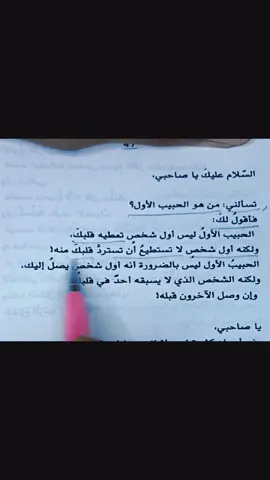 السّلام عليكَ يا صاحبي،
تسألني: من هو الحبيب الأول؟
فأقولُ لكَ:
الحبيب الأولُ ليس أول شخص تعطيه قلبكَ،
ولكنه أول شخصٍ لا تستطيعُ أن تستردَّ قلبكَ منه!
الحبيبُ الأول ليس بالضرورة أنه أول شخصٍ يصلُ إليك،
ولكنه الشخص الذي لا يسبقه أحدٌ في
وإن وصل الآخرون قبله!
يا صاحبي،